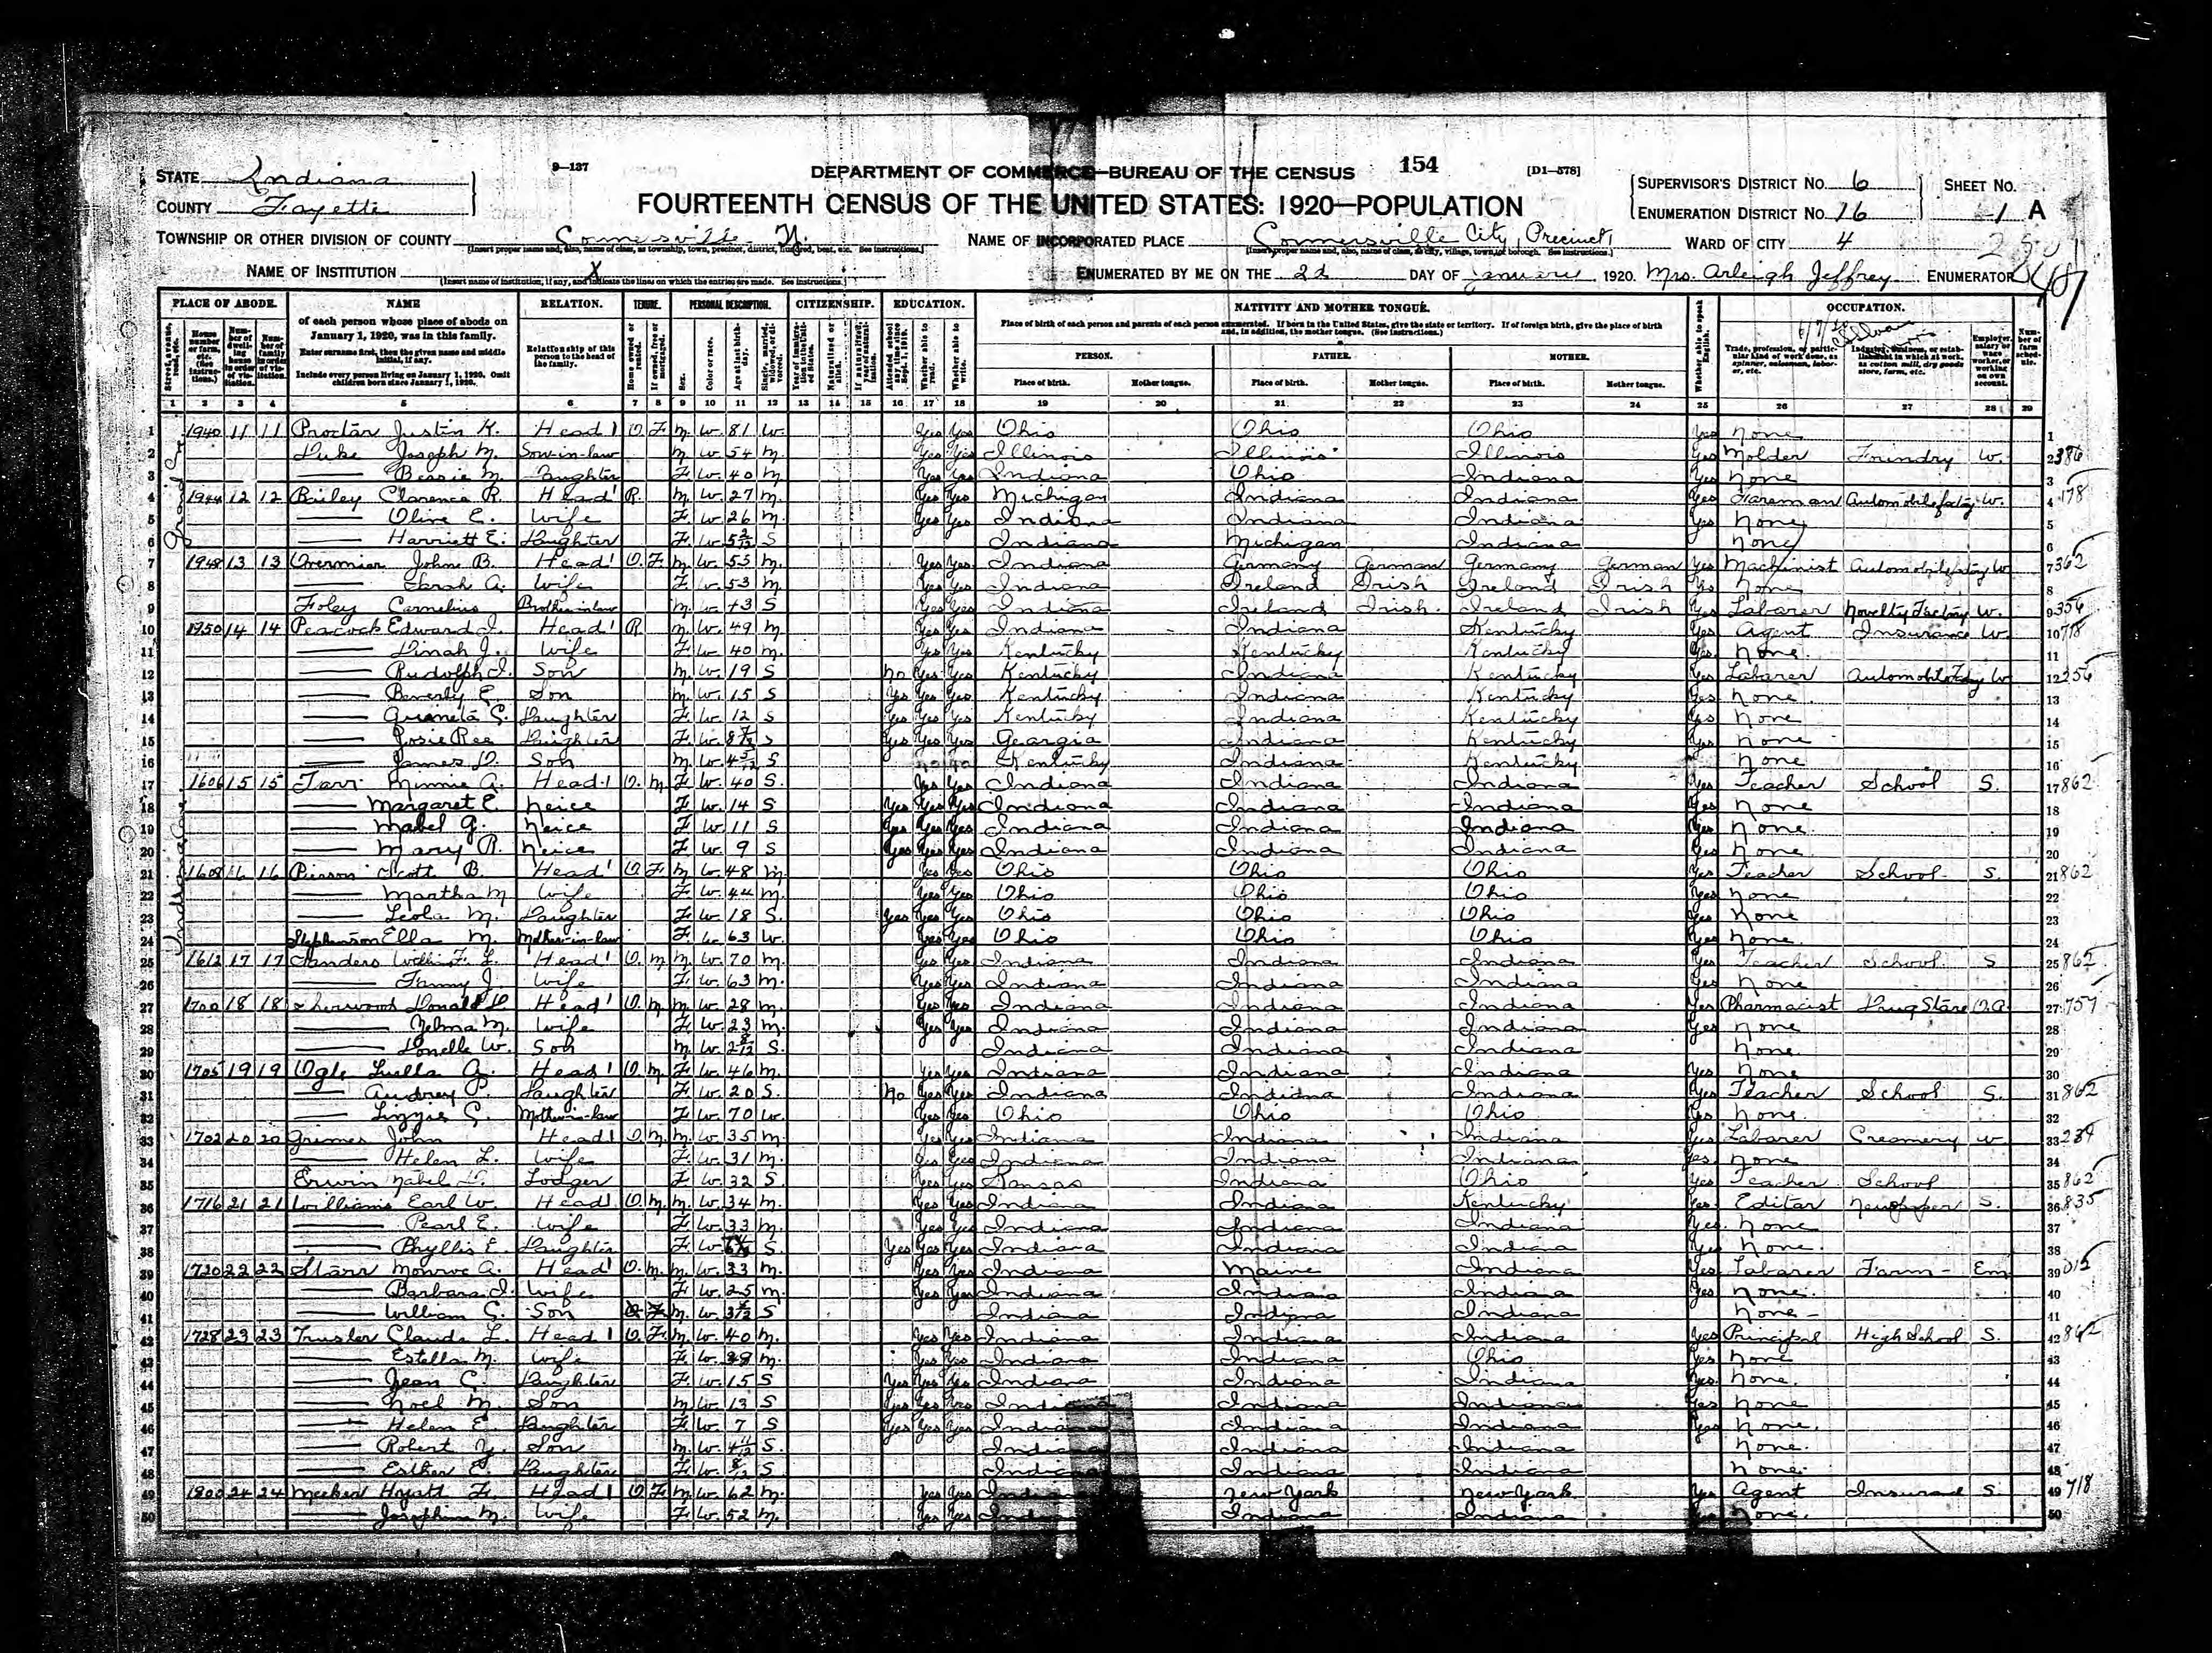 9—137
DEPARTMENT OF COMMERCE—BUREAU OF THE CENSUS 154 [D1—578]
STATE Indiana
COUNTY Fayette
FOURTEENTH CENSUS OF THE UNITED STATES: 1920—POPULATION
SUPERVISOR'S DISTRICT NO. 6 SHEET NO.
ENUMERATION DISTRICT NO. 16 1 A
TOWNSHIP OR OTHER DIVISION OF COUNTY Connersville
NAME OF INCORPORATED PLACE Connersville City, Precinct 1 WARD OF CITY 4
NAME OF INSTITUTION X
ENUMERATED BY ME ON THE 2d DAY OF January 1920. Mrs. Arleigh Jeffrey ENUMERATOR
PLACE OF ABODE. NAME RELATION. TENURE. PERSONAL DESCRIPTION. CITIZENSHIP. EDUCATION. NATIVITY AND MOTHER TONGUE. OCCUPATION.
of each person whose place of abode on January 1, 1920, was in this family.
Enter surname first, then the given name and middle initial, if any.
Include every person living on January 1, 1920. Omit children born since January 1, 1920.
Relationship of this person to the head of the family.
Place of birth of each person and parents of each person enumerated. If born in the United States, give the state or territory. If of foreign birth, give the place of birth and, in addition, the mother tongue. (See instructions.)
PERSON. FATHER. MOTHER.
Place of birth. Mother tongue. Place of birth. Mother tongue. Place of birth. Mother tongue.
1 2 3 4 5 6 7 8 9 10 11 12 13 14 15 16 17 18 19 20 21 22 23 24 25 26 27 28 29
1 1940 11 11 Proctor Justin K. Head 1 O F M W 81 W Yes Yes Ohio Ohio Ohio Yes None 1
2 Luke Joseph M. Son-in-law M W 54 M Yes Yes Illinois Illinois Illinois Yes Molder Foundry W. 2 386
3 —— Bessie M. Daughter F W 40 M Yes Yes Indiana Ohio Indiana Yes None 3
4 1944 12 12 Bailey Clarence R. Head 1 R M W 27 M Yes Yes Michigan Indiana Indiana Yes Foreman Automobile factory W. 4 178
5 —— Olive E. Wife F W 26 M Yes Yes Indiana Indiana Indiana Yes None 5
6 —— Harriett E. Daughter F W 5 2/12 S Indiana Michigan Indiana None 6
7 1948 13 13 John B. Head 1 O F M W 55 M Yes Yes Indiana Germany German Germany German Yes Machinist Automobile factory W 7 362
8 —— Sarah A. Wife F W 53 M Yes Yes Indiana Ireland Irish Ireland Irish Yes None 8
9 Foley Cornelius Brother-in-law M W 43 S Yes Yes Indiana Ireland Irish Ireland Irish Yes Laborer Novelty Factory W. 9 356
10 1950 14 14 Peacock Edward J. Head 1 R M W 49 M Yes Yes Indiana Indiana Kentucky Yes Agent Insurance W 10 718
11 —— Dinah J. Wife F W 40 M Yes Yes Kentucky Kentucky Kentucky Yes None 11
12 —— Rudolph I. Son M W 19 S No Yes Yes Kentucky Indiana Kentucky Yes Laborer Automobile Facty W 12 256
13 —— Beverly E. Son M W 15 S Yes Yes Yes Kentucky Indiana Kentucky Yes None 13
14 —— Daughter F W 12 S Yes Yes Yes Kentucky Indiana Kentucky Yes None 14
15 —— Rosie Ree Daughter F W 8 S Yes Yes Yes Georgia Indiana Kentucky Yes None 15
16 —— James D. Son M W 4 5/12 S no no Kentucky Indiana Kentucky None 16
17 1606 15 15 Tarr Minnie A. Head 1 O M F W 40 S Yes Yes Indiana Indiana Indiana Yes Teacher School S. 17 862
18 —— Margaret E. Neice F W 14 S Yes Yes Yes Indiana Indiana Indiana Yes None 18
19 —— Mabel G. Neice F W 11 S Yes Yes Yes Indiana Indiana Indiana Yes None 19
20 —— Mary R. Neice F W 9 S Yes Yes Yes Indiana Indiana Indiana Yes None 20
21 1608 16 16 Pierson Scott B. Head 1 O F M W 48 M Yes Yes Ohio Ohio Ohio Yes Teacher School S. 21 862
22 —— Martha M Wife F W 44 M Yes Yes Ohio Ohio Ohio Yes None 22
23 —— Leola M. Daughter F W 18 S Yes Yes Yes Ohio Ohio Ohio Yes None 23
24 Stephenson Ella M. Mother-in-law F W 63 W Yes Yes Ohio Ohio Ohio Yes None 24
25 1612 17 17 Sanders L. Head 1 O M M W 70 M Yes Yes Indiana Indiana Indiana Yes Teacher School S 25 862
26 —— Fanny J. Wife F W 63 M Yes Yes Indiana Indiana Indiana Yes None 26
27 1700 18 18 Sherwood Donald D. Head 1 O M M W 28 M Yes Yes Indiana Indiana Indiana Yes Pharmacist Drug Store O.A. 27 757
28 —— Zelma M. Wife F W 23 M Yes Yes Indiana Indiana Indiana Yes None 28
29 —— Donelle W. Son M W 2 8/12 S Indiana Indiana Indiana None 29
30 1705 19 19 Ogle Luella A. Head 1 O M F W 46 M Yes Yes Indiana Indiana Indiana Yes None 30
31 —— Audrey P. Daughter F W 20 S No Yes Yes Indiana Indiana Indiana Yes Teacher School S. 31 862
32 —— Lizzie S. Mother-in-law F W 70 W Yes Yes Ohio Ohio Ohio Yes None 32
33 1702 20 20 Grimes John Head 1 O M M W 35 M Yes Yes Indiana Indiana Indiana Yes Laborer Creamery W 33 234
34 —— Helen L. Wife F W 31 M Yes Yes Indiana Indiana Indiana Yes None 34
35 Erwin Mabel D. Lodger F W 32 S Yes Yes Kansas Indiana Ohio Yes Teacher School 35 862
36 1716 21 21 Williams Earl W. Head 1 O M M W 34 M Yes Yes Indiana Indiana Kentucky Yes Editor Newspaper S. 36 835
37 —— Pearl E. Wife F W 33 M Yes Yes Indiana Indiana Indiana Yes None 37
38 —— Phyllis E. Daughter F W S Yes Yes Yes Indiana Indiana Indiana Yes None 38
39 1720 22 22 Starr Monroe A. Head 1 O M M W 33 M Yes Yes Indiana Maine Indiana Yes Laborer Farm Em 39 015
40 —— Barbara I. Wife F W 25 M Yes Yes Indiana Indiana Indiana Yes None 40
41 —— William S. Son O F M W 3 S Indiana Indiana Indiana None 41
42 1728 23 23 Trusler Claude L. Head 1 O F M W 40 M Yes Yes Indiana Indiana Indiana Yes Principal High School S. 42 862
43 —— Estella M. Wife F W 38 M Yes Yes Indiana Indiana Ohio Yes None 43
44 —— Jean C. Daughter F W 15 S Yes Yes Yes Indiana Indiana Indiana Yes None 44
45 —— Noel M. Son M W 13 S Yes Yes Yes Indiana Indiana Indiana Yes None 45
46 —— Helen E. Daughter F W 7 S Yes Yes Yes Indiana Indiana Indiana Yes None 46
47 —— Robert Y. Son M W 4 11/12 S Indiana Indiana Indiana None 47
48 —— Esther E. Daughter F W 8/12 S Indiana Indiana Indiana None 48
49 1800 24 24 Meeker Hyatt F. Head 1 O F M W 62 M Yes Yes Indiana New York New York Yes Agent Insurance S. 49 718
50 —— Josephine M. Wife F W 52 M Yes Yes Indiana Indiana Indiana Yes None 50